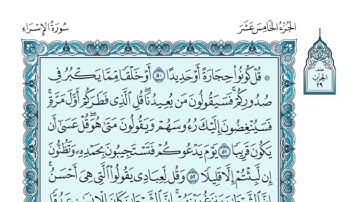 سُورَةُ الإِسْرَاءِ
الجُزْءُ الخَامِسَ عَشَرَ
۞ قُلْ كُونُوا۟ حِجَارَةً أَوْ حَدِيدًا ۝٥٠ أَوْ خَلْقًا مِّمَّا يَكْبُرُ فِى
صُدُورِكُمْ ۚ فَسَيَقُولُونَ مَن يُعِيدُنَا ۖ قُلِ ٱلَّذِى فَطَرَكُمْ أَوَّلَ مَرَّةٍ ۚ
فَسَيُنْغِضُونَ إِلَيْكَ رُءُوسَهُمْ وَيَقُولُونَ مَتَىٰ هُوَ ۖ قُلْ عَسَىٰٓ أَن
يَكُونَ قَرِيبًا ۝٥١ يَوْمَ يَدْعُوكُمْ فَتَسْتَجِيبُونَ بِحَمْدِهِۦ وَتَظُنُّونَ
إِن لَّبِثْتُمْ إِلَّا قَلِيلًا ۝٥٢ وَقُل لِّعِبَادِى يَقُولُوا۟ ٱلَّتِى هِىَ أَحْسَنُ ۚ
نصف
الحزب
٢٩